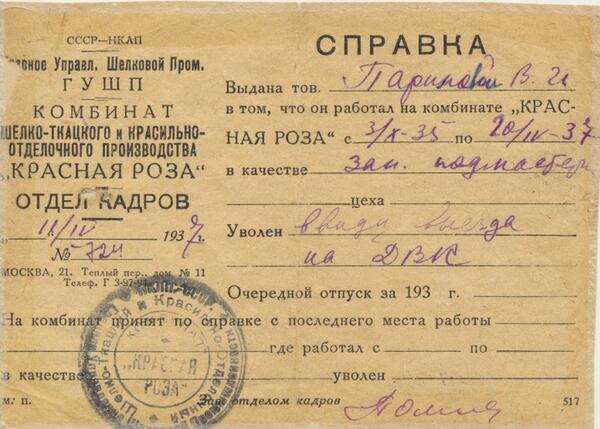 СССР—НКЛП
Главное Управл. Шелковой Пром.
ГУШП
КОМБИНАТ
ШЕЛКО-ТКАЦКОГО и КРАСИЛЬНО-
ОТДЕЛОЧНОГО ПРОИЗВОДСТВА
„КРАСНАЯ РОЗА“
ОТДЕЛ КАДРОВ
11/IV 1937 г.
№ 724
МОСКВА, 21. Теплый пер., дом № 11
Телеф. Г 3-97-9
СПРАВКА
Выдана тов. В. И.
в том, что он работал на комбинате „КРАС-
НАЯ РОЗА“ с 3/X-35 по 20/IV-37
в качестве зам. подмастер
цеха
Уволен ввиду выезда
на ДВК
Очередной отпуск за 193 г.
На комбинат принят по справке с последнего места работы
где работал с по
в качестве уволен
м. п. Зав. отделом кадров 517
„КРАСНАЯ
РОЗА“